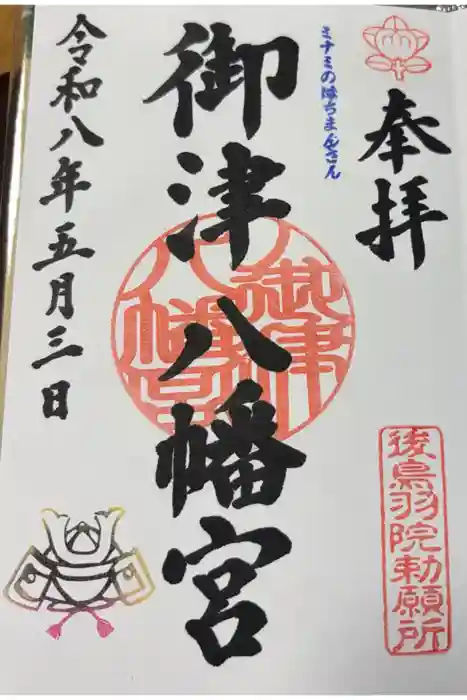 奉拝
ミナミのはちまんさん
御津八幡宮
令和八年五月三日
後鳥羽院勅願所
御津
八幡宮